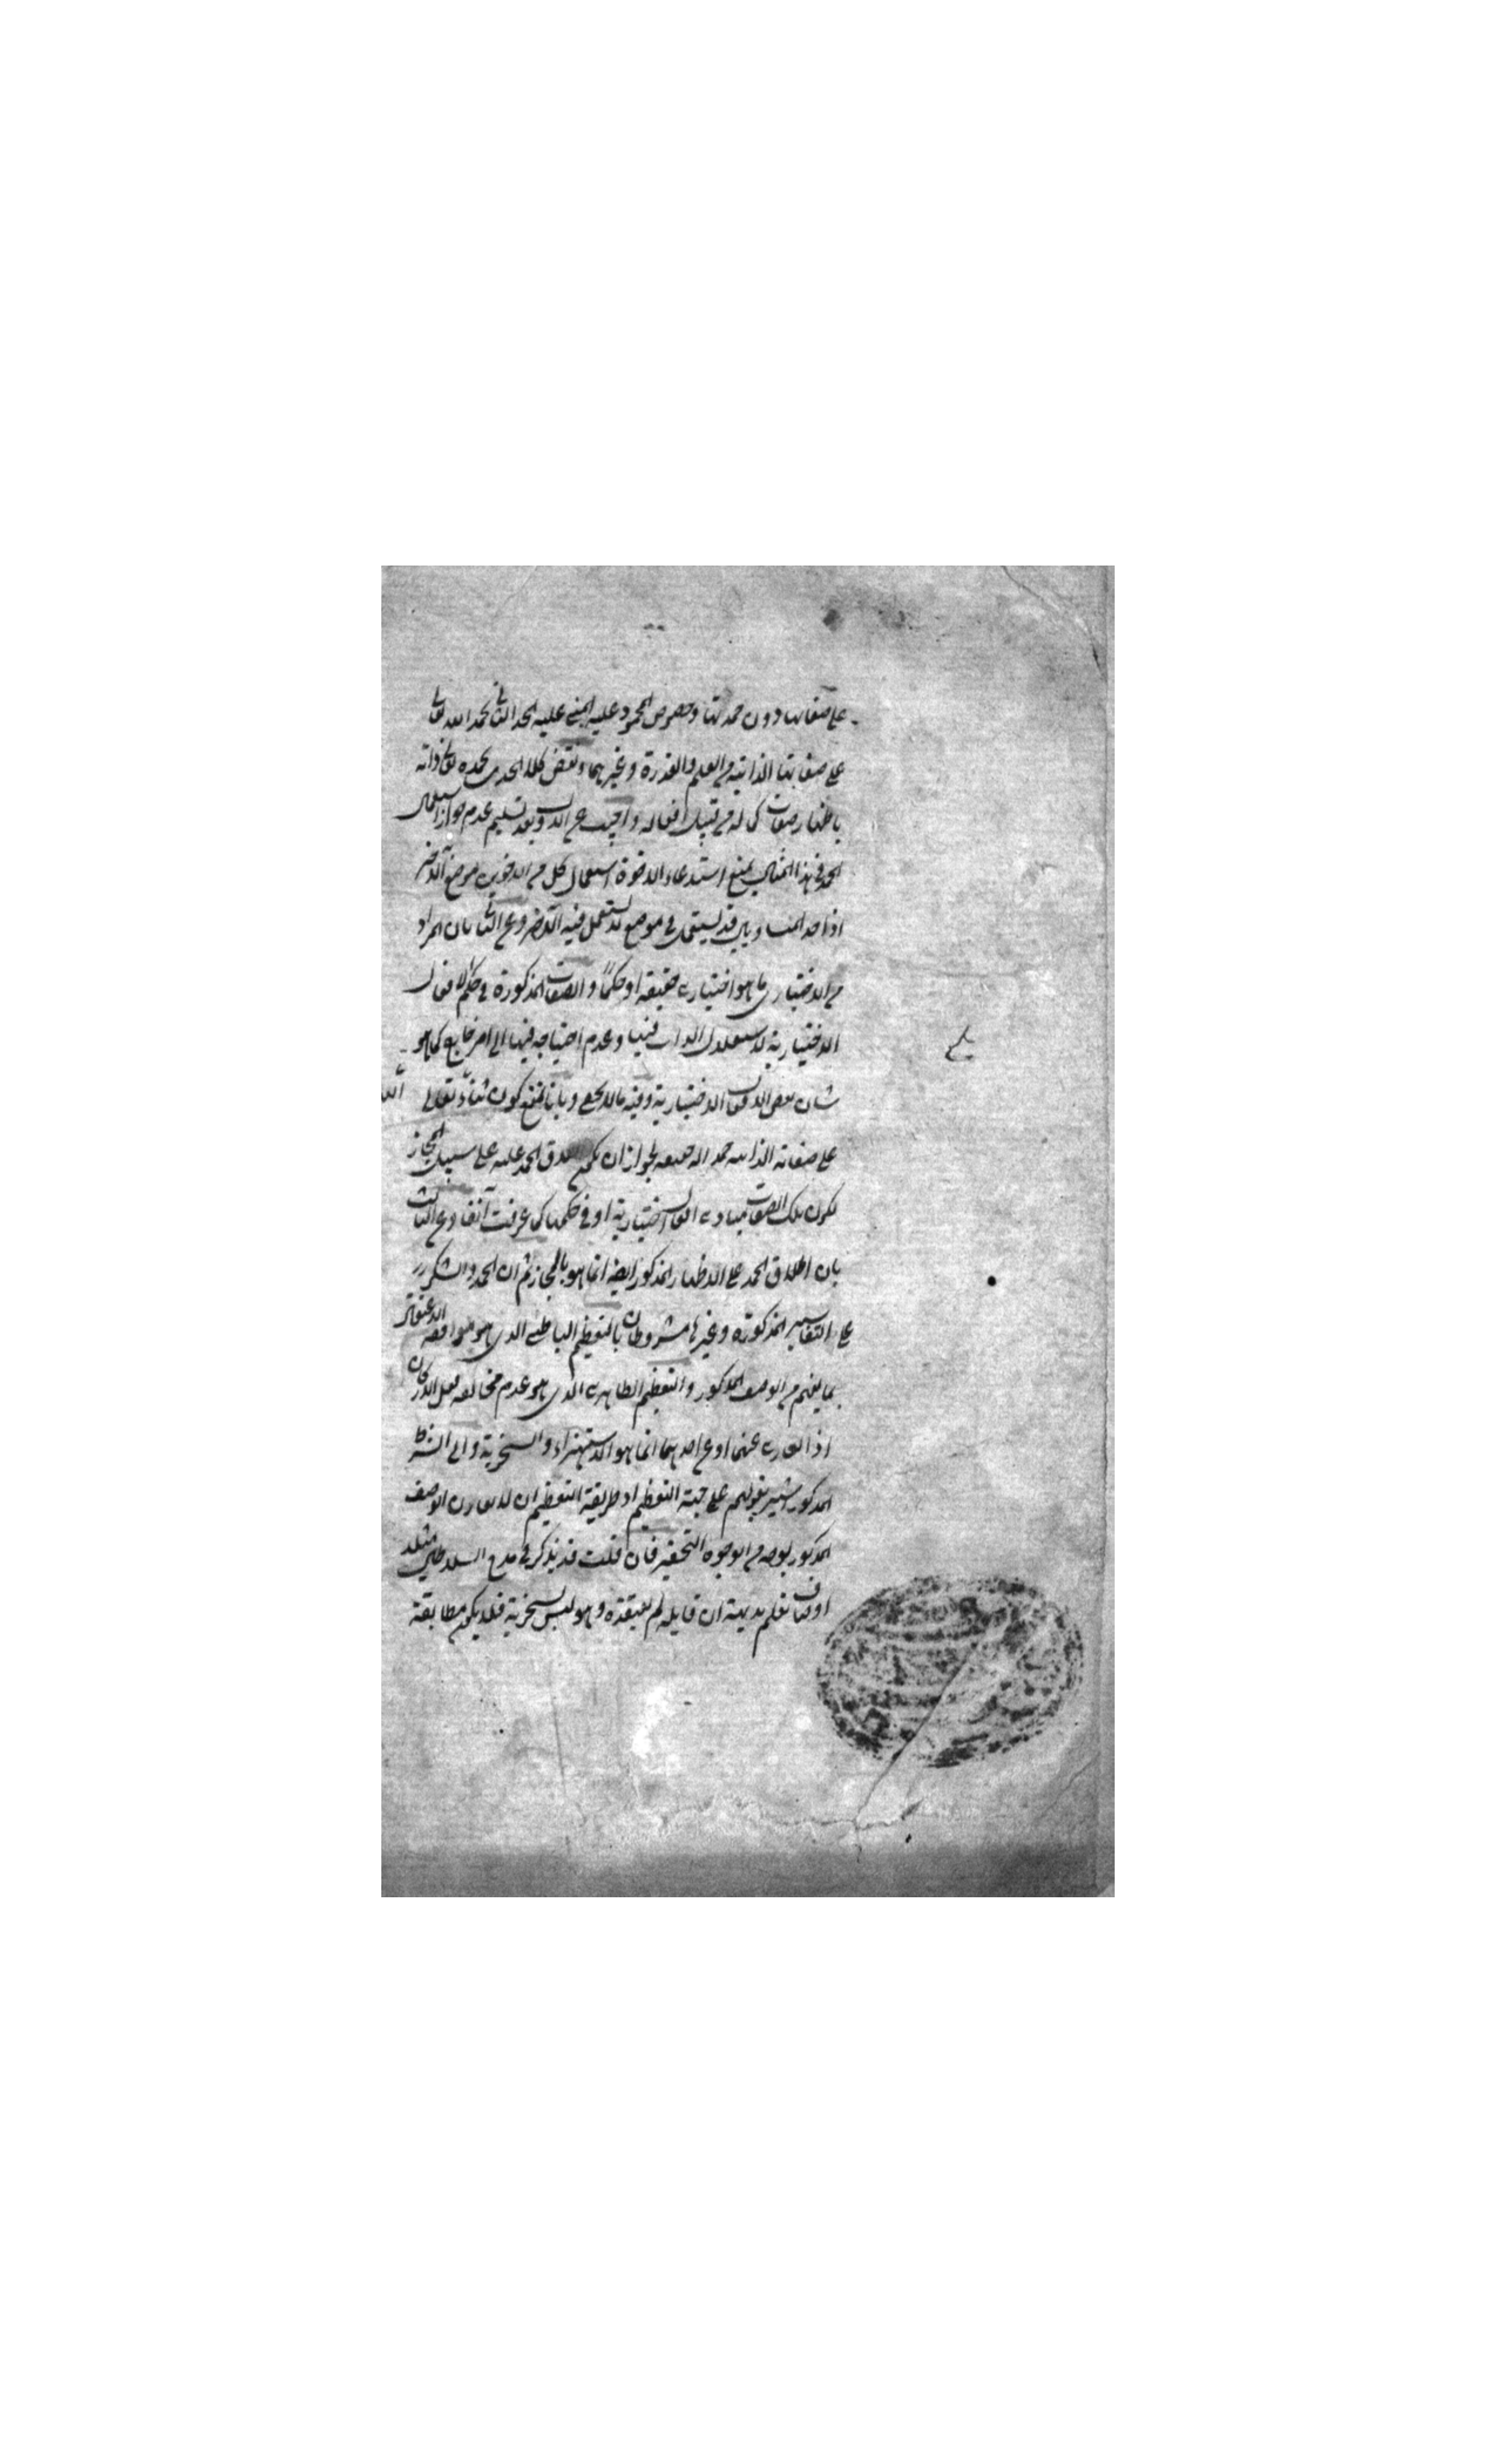 على صفائها دون حمدتها وخصوص المحمود عليه المبنى عليه الحد الثاني بحمد الله تعالى
على صفاتها الذاتية من العلم والقدرة وغيرهما ونقض كلا الحدي بحمده تعالى ذاته
باظهار صفات كماله من قبيل افعاله واجيب عن الاول وبعد تسليم عدم جواز استعمال
الحمد في هذا المثال بمنع استدعاء الاخوة استعمال كل من الاخوين موضع الآخر
اذ احد المتساويين قد يستعمل في موضع لا يستعمل فيه الآخر وعن الثاني بان المراد
من الاختياري ما هو اختياري حقيقة او حكمًا والصفات المذكورة في حكم الافعال
الاختيارية لاستقلال الذات فيها وعدم احتياجه فيها الى امر خارج كما هو
شان بعض الافعال الاختيارية وفيه ما لا يخفى وبانا نمنع كون ثناء الله تعالى
على صفاته الذاتية حمد اله حقيقة لجواز ان يكون اطلاق الحمد عليه على سبيل المجاز
لكون تلك الصفات مبادي افعال اختيارية او في حكمها كما عرفت آنفا وعن الثالث
بان اطلاق الحمد على الاظهار المذكور ايضا انما هو بالمجاز ثم ان الحمد والشكر
على التفاسير المذكورة وغيرها مشروطان بالتعظيم الباطني الذي هو موافقة الاعتقاد
بما يفهم من الوصف المذكور والتعظيم الظاهري الذي هو عدم مخالفة فعل الاركان
اذ العاري عنهما او عن احدهما انما هو الاستهزاء والسخرية والى الشرط
المذكور اشير بقولهم على جهة التعظيم او طريقة التعظيم ان لا يقارن الوصف
المذكور بوجه من الوجوه التحقير فان قلت قد يذكر في مدح السلاطين مثلا
اوصاف نعلم بديهة ان قايله لم يعتقده وهو ليس بسخرية فلا يكون مطابقة